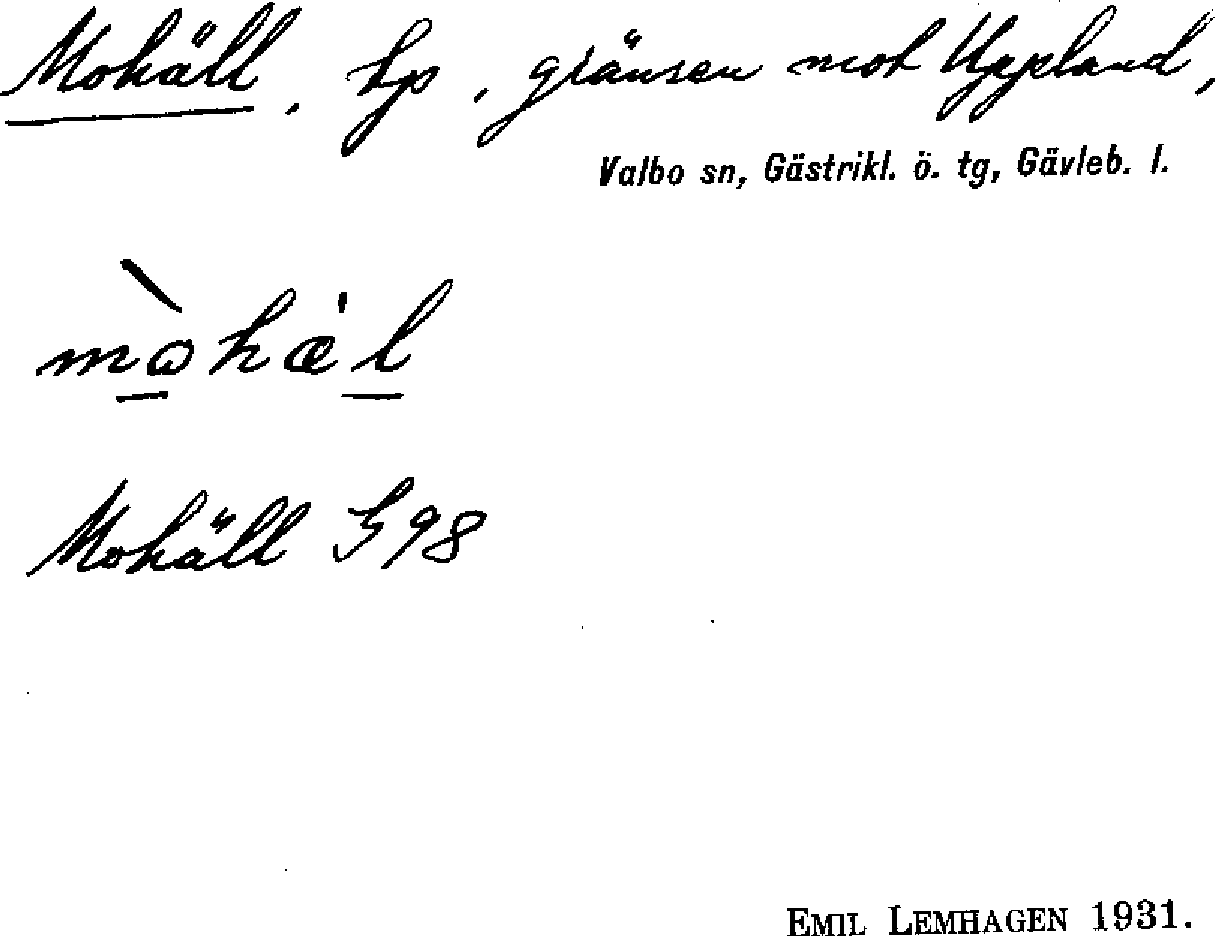 Mohäll, hp, gränsen mot Uppland,
Valbo sn, Gästrikl. ö. tg, Gävleb. l.
mòhæ̀l
Mohäll G 98
EMIL LEMHAGEN 1931.